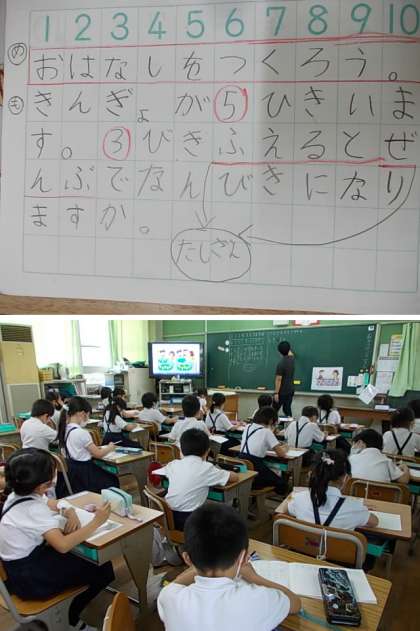 1 2 3 4 5 6 7 8 9 10
め おはなしをつくろう。
も きんぎょが⑤ひきいま
す。③びきふえるとぜ
んぶでなんびきになり
ますか。
たしざん